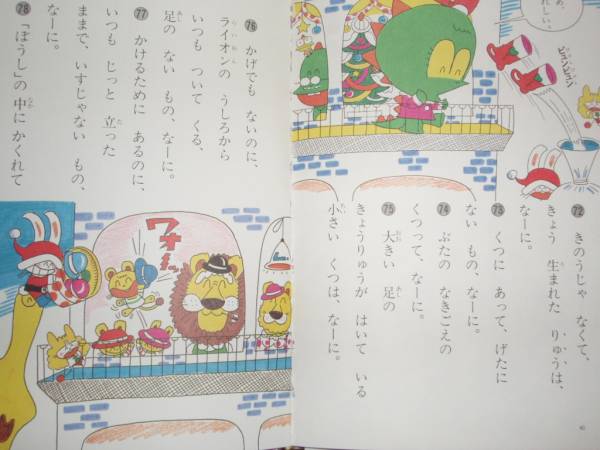 れしい。
め、
ジャバジャバ
㉒ きのうじゃ なくて、
きょう 生まれた りゅうは、
なーに。
㉓ くつに あって、げたに
ない もの、なーに。
㉔ ぶたの なきごえの
くつって、なーに。
㉕ 大きい 足の
きょうりゅうが はいて いる
小さい くつは、なーに。
40
㉖ かげでも ないのに、
ライオンの うしろから
いつも ついて くる、
足の ない もの、なーに。
㉗ かけるために あるのに、
いつも じっと 立った
ままで、いすじゃない もの、
なーに。
㉘ 「ぼうし」の 中に かくれて
ワオーッ